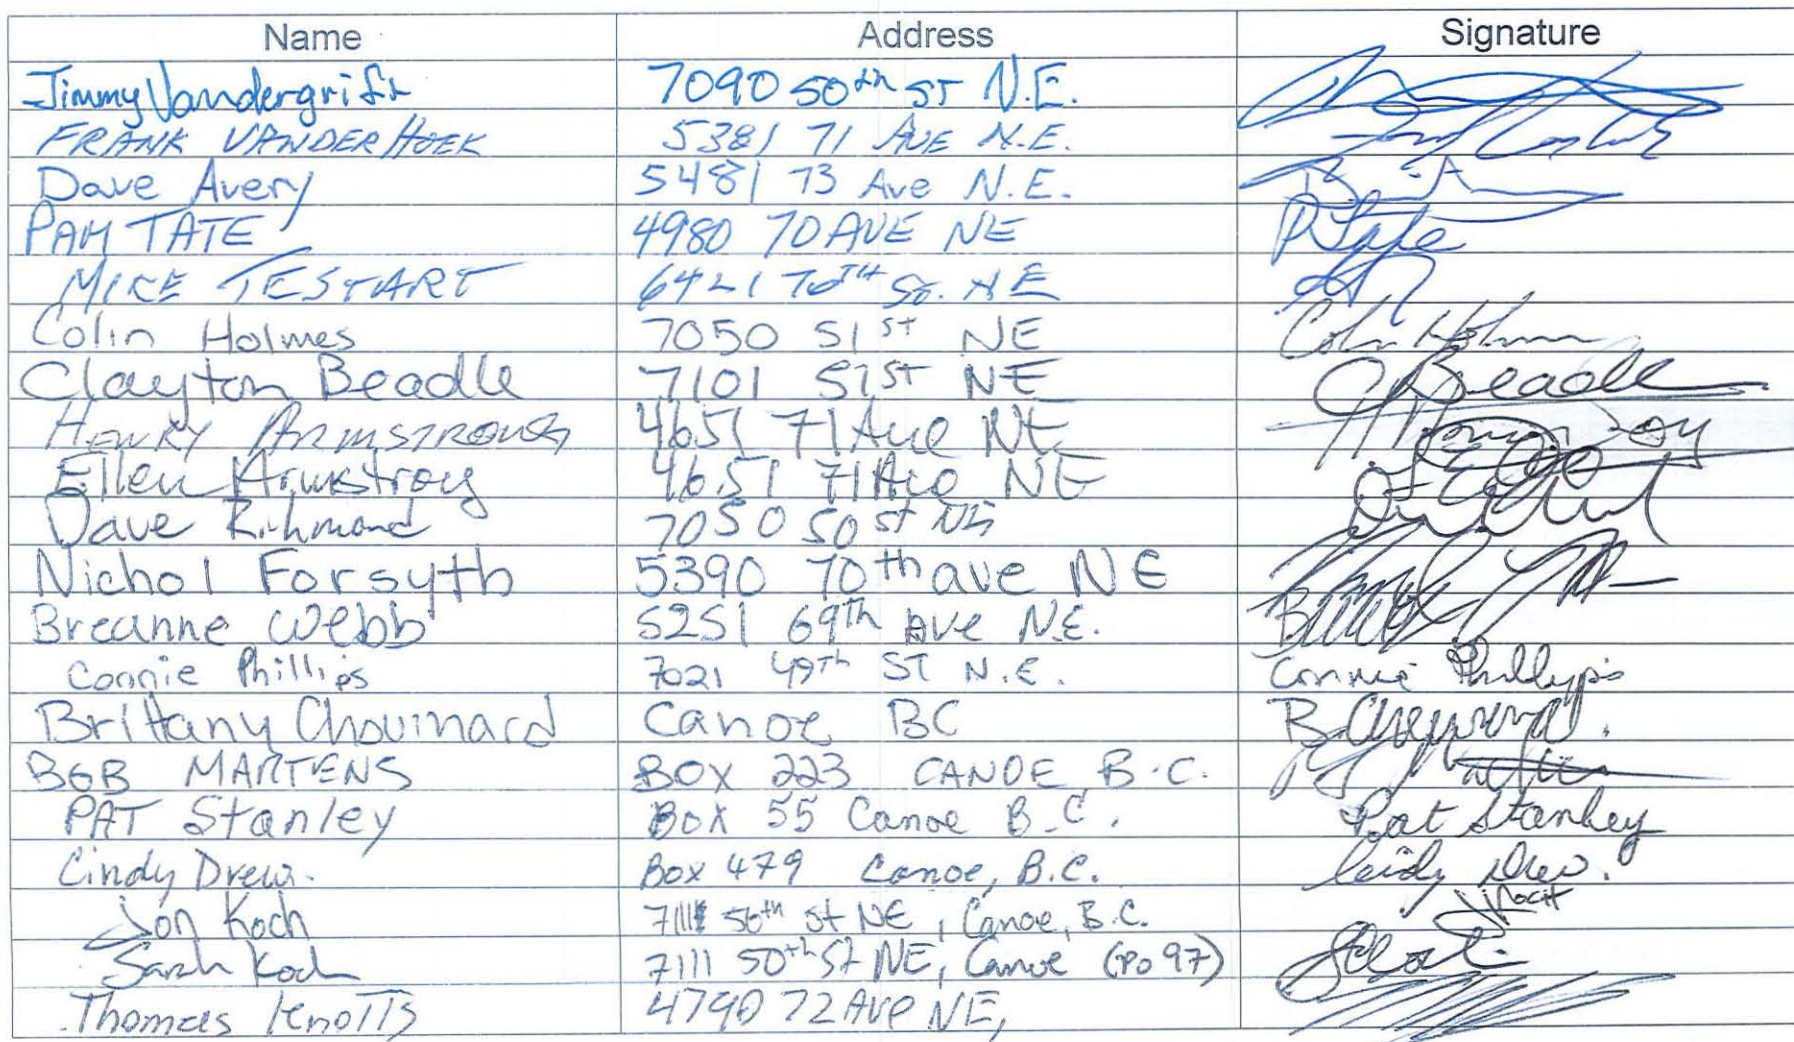 Name Address Signature
Jimmy Vandergrift 7090 50th ST N.E.
FRANK VANDERHOEK 5381 71 AVE N.E.
Dave Avery 5481 73 Ave N.E.
PAM TATE 4980 70 AVE NE P Tate
MIKE TESTART 6421 70TH St. NE
Colin Holmes 7050 51st NE Colin Holmes
Clayton Beadle 7101 51ST NE C Beadle
HENRY ARMSTRONG 4651 71 Ave NE
Ellen Armstrong 4651 71 Ave NE
Dave Richmond 7050 50 st NE
Nichol Forsyth 5390 70th ave NE
Breanne Webb 5251 69Th Ave N.E.
Connie Phillips 7021 49Th ST N.E. Connie Phillips
Brittany Chouinard Canoe BC B Chouinard.
BOB MARTENS BOX 223 CANOE B.C.
PAT Stanley Box 55 Canoe B.C. Pat Stanley
Cindy Drew. Box 479 Canoe, B.C. Cindy Drew.
Jon Koch 7111 50th St NE, Canoe, B.C. J Koch
Sarah Koch 7111 50th St NE, Canoe (PO 97) S Koch
Thomas Knotts 4790 72 AVe NE,